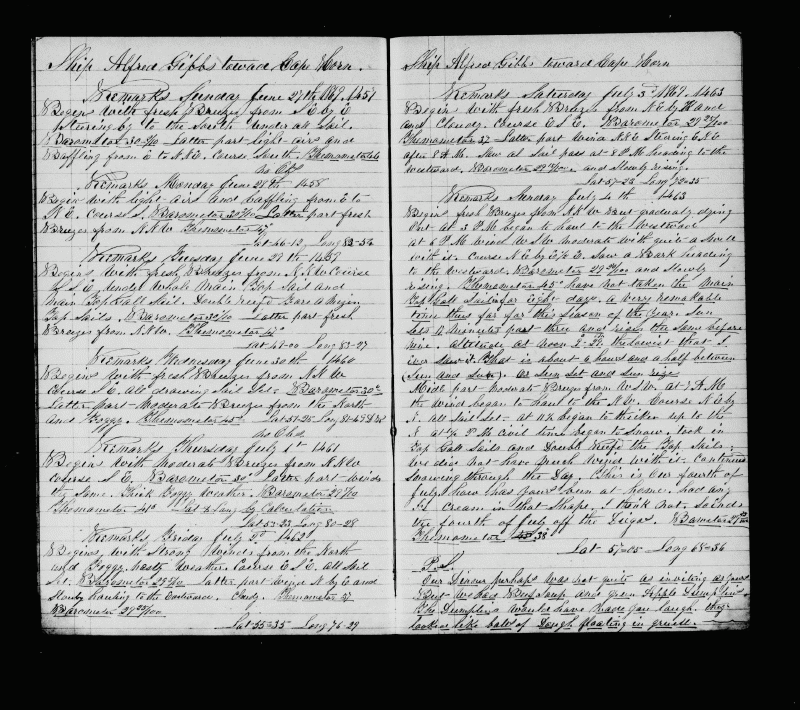 Ship Alfred Gibbs toward Cape Horn.
Remarks Sunday June 27th 1869. 1457
Begins with fresh Breezes from S E by E
Stearing by to the South under all Sail.
Barometer Latter part light airs and
Baffling from E to N.N.E. Course South. Thermometer
Remarks Monday June 28th 1458
Begins with light airs and baffling from E to
N.E. Course S. Barometer Latter part fresh
Breezes from N.N.W. Thermometer
Lat 46-12, Long 82-56
Remarks Tuesday June 29th 1459
Begins with fresh Breezes from N.N.W Course
S.S.E. under whole Main Top Sail and
Main Top Gall Sail. Double reefed Fore & Mizen
Top Sails. Barometer Latter part fresh
Breezes from N.N.W. Thermometer
Lat 49-00 Long 83-27
Remarks Wednesday June 30th 1460
Begins with fresh Breezes from N.N.W
Course S.E. All drawing Sail Set. Barometer 30
Latter part moderate Breezes from the North
and Foggy. Thermometer 45° Lat 51-25 Long
Remarks Thursday July 1st 1461
Begins with moderate Breezes from N.N.W
Course S.E. Barometer 30 Latter part winds
the same. Thick Foggy Weather. Barometer
Thermometer Lat & Long by Calculation
Lat 53-23 Long 80-28
Remarks Friday July 2d 1462
Begins with Strong Winds from the North
and Foggy, nasty Weather. Course E.S.E. all Sail
Set. Barometer Latter part wind N. by E and
Slowly hauling to the Eastward. Cloudy. Thermometer
Barometer
Lat 55-35 Long 76-29
Ship Alfred Gibbs toward Cape Horn
Remarks Saturday July 3d 1869. 1463
Begins with fresh Breezes from N.E by N and
and Cloudy. Course E.S.E. Barometer
Thermometer 37 Latter part Wind N.N.E Stearing E.N.E
after P.M. Saw a Sail pass at 8 P.M heading to the
Westward. Barometer and Slowly rising.
Lat 57-23 Long 72-35
Remarks Sunday July 4th 1463
Begins fresh Breezes from N.N.W but gradualy dying
Out at 3 P.M began to haul to the Westward
at 6 P.M wind W.S.W moderate with quite a Swell
with it. Course N.E by E ½ E. Saw a Bark heading
to the westward. Barometer and Slowly
rising. Thermometer 45° have not taken the Main
Top Gall Sails in for eight days. a very remarkable
time thus far for this season of the Year. Sun
Sets 12 Minutes past three and rises the same before
nine. Altitude at noon the lowest that I
ever Saw it. That is about 6 hours and a half between
Sun and Sun. or Sun Set and Sun rise
Middle part moderate Breeze from W.S.W. at 3 A.M
the wind began to haul to the N.W. Course N.E by
E. all Sail Set. at 11 ½ began to thicken up to the
at ½ P.M civil time began to Snow. took in
Top Gall Sails and Double Reefed the Top Sails.
We did not have much wind with it. Continues
Snowing through the Day. This is our fourth of
July. how has yours been at home. had any
Ice cream in that Shape. I think not. Sounds
the fourth of July off the Diegos. Barometer
Thermometer 38
Lat 57-05 Long 68-36
P.S.
Our Dinner perhaps was not quite as inviting as yours
But we had Bean Soup and green Apple Dumplins
The Dumplins would have made you laugh. they
looked like balls of Dough floating in grease.